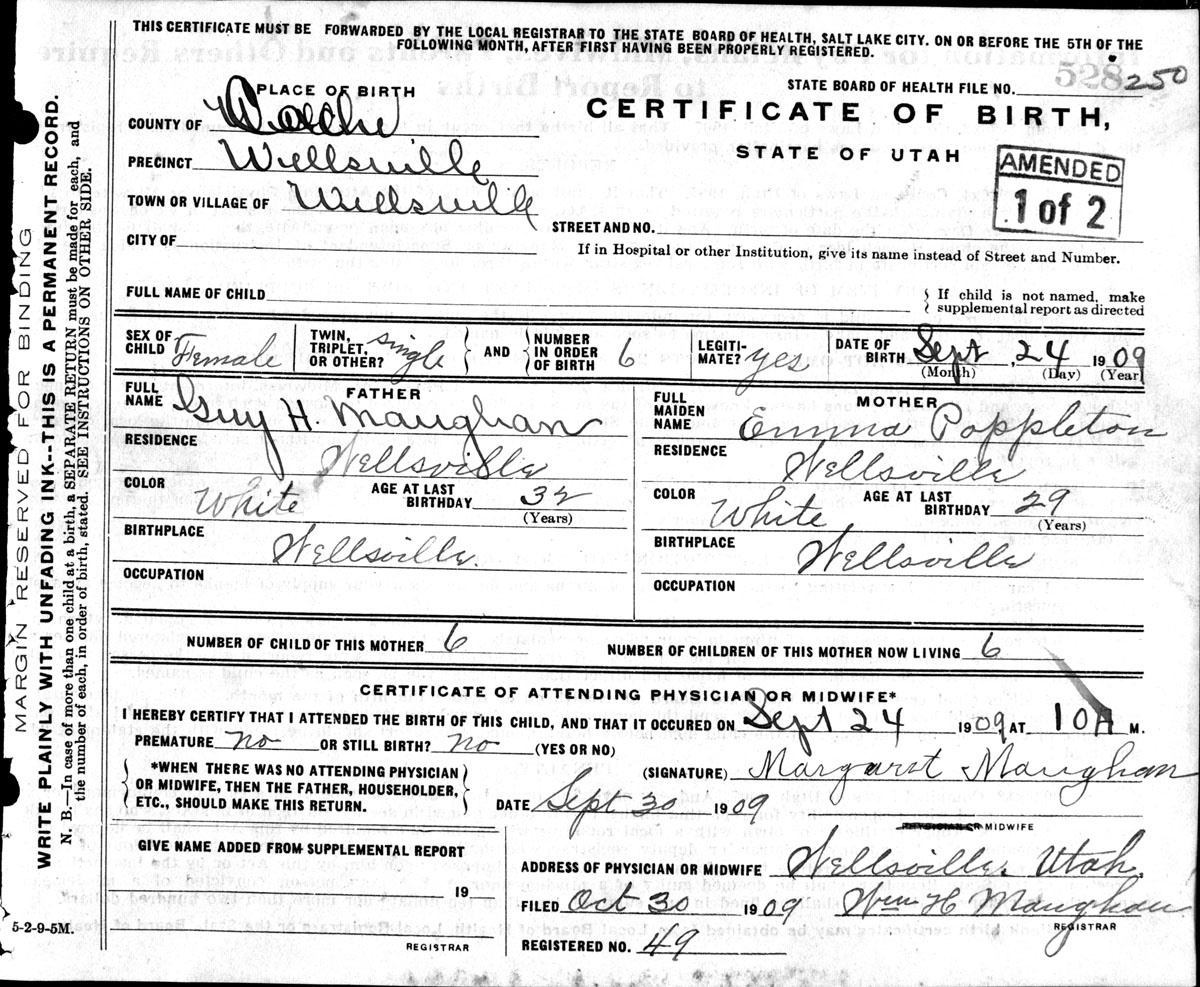 THIS CERTIFICATE MUST BE FORWARDED BY THE LOCAL REGISTRAR TO THE STATE BOARD OF HEALTH, SALT LAKE CITY. ON OR BEFORE THE 5TH OF THE
FOLLOWING MONTH, AFTER FIRST HAVING BEEN PROPERLY REGISTERED.
STATE BOARD OF HEALTH FILE NO. 528 250
PLACE OF BIRTH
CERTIFICATE OF BIRTH,
COUNTY OF Cache
STATE OF UTAH
PRECINCT Wellsville
AMENDED
1 of 2
TOWN OR VILLAGE OF Wellsville
STREET AND NO.
CITY OF
If in Hospital or other Institution, give its name instead of Street and Number.
FULL NAME OF CHILD
{ If child is not named, make
supplemental report as directed
SEX OF CHILD Female
TWIN, TRIPLET, OR OTHER? single
AND
NUMBER IN ORDER OF BIRTH 6
LEGITI-MATE? yes
DATE OF BIRTH Sept, 24 1909
(Month) (Day) (Year)
FATHER
FULL NAME Guy H. Maughan
MOTHER
FULL MAIDEN NAME Emma Poppleton
RESIDENCE Wellsville
RESIDENCE Wellsville
COLOR White
AGE AT LAST BIRTHDAY 32
(Years)
COLOR White
AGE AT LAST BIRTHDAY 29
(Years)
BIRTHPLACE Wellsville.
BIRTHPLACE Wellsville
OCCUPATION
OCCUPATION
NUMBER OF CHILD OF THIS MOTHER 6
NUMBER OF CHILDREN OF THIS MOTHER NOW LIVING 6
CERTIFICATE OF ATTENDING PHYSICIAN OR MIDWIFE*
I HEREBY CERTIFY THAT I ATTENDED THE BIRTH OF THIS CHILD, AND THAT IT OCCURED ON Sept 24 1909 AT 10 A M.
PREMATURE no OR STILL BIRTH? no (YES OR NO)
*WHEN THERE WAS NO ATTENDING PHYSICIAN
OR MIDWIFE, THEN THE FATHER, HOUSEHOLDER,
ETC., SHOULD MAKE THIS RETURN.
(SIGNATURE) Margaret Maughan
DATE Sept 30 1909
PHYSICIAN OR MIDWIFE
GIVE NAME ADDED FROM SUPPLEMENTAL REPORT
19
REGISTRAR
ADDRESS OF PHYSICIAN OR MIDWIFE Wellsville. Utah.
FILED Oct 30 1909 Wm H Maughan
REGISTRAR
REGISTERED NO. 49
5-2-9-5M.
MARGIN RESERVED FOR BINDING
WRITE PLAINLY WITH UNFADING INK--THIS IS A PERMANENT RECORD.
N. B.—In case of more than one child at a birth, a SEPARATE RETURN must be made for each, and
the number of each, in order of birth, stated. SEE INSTRUCTIONS ON OTHER SIDE.